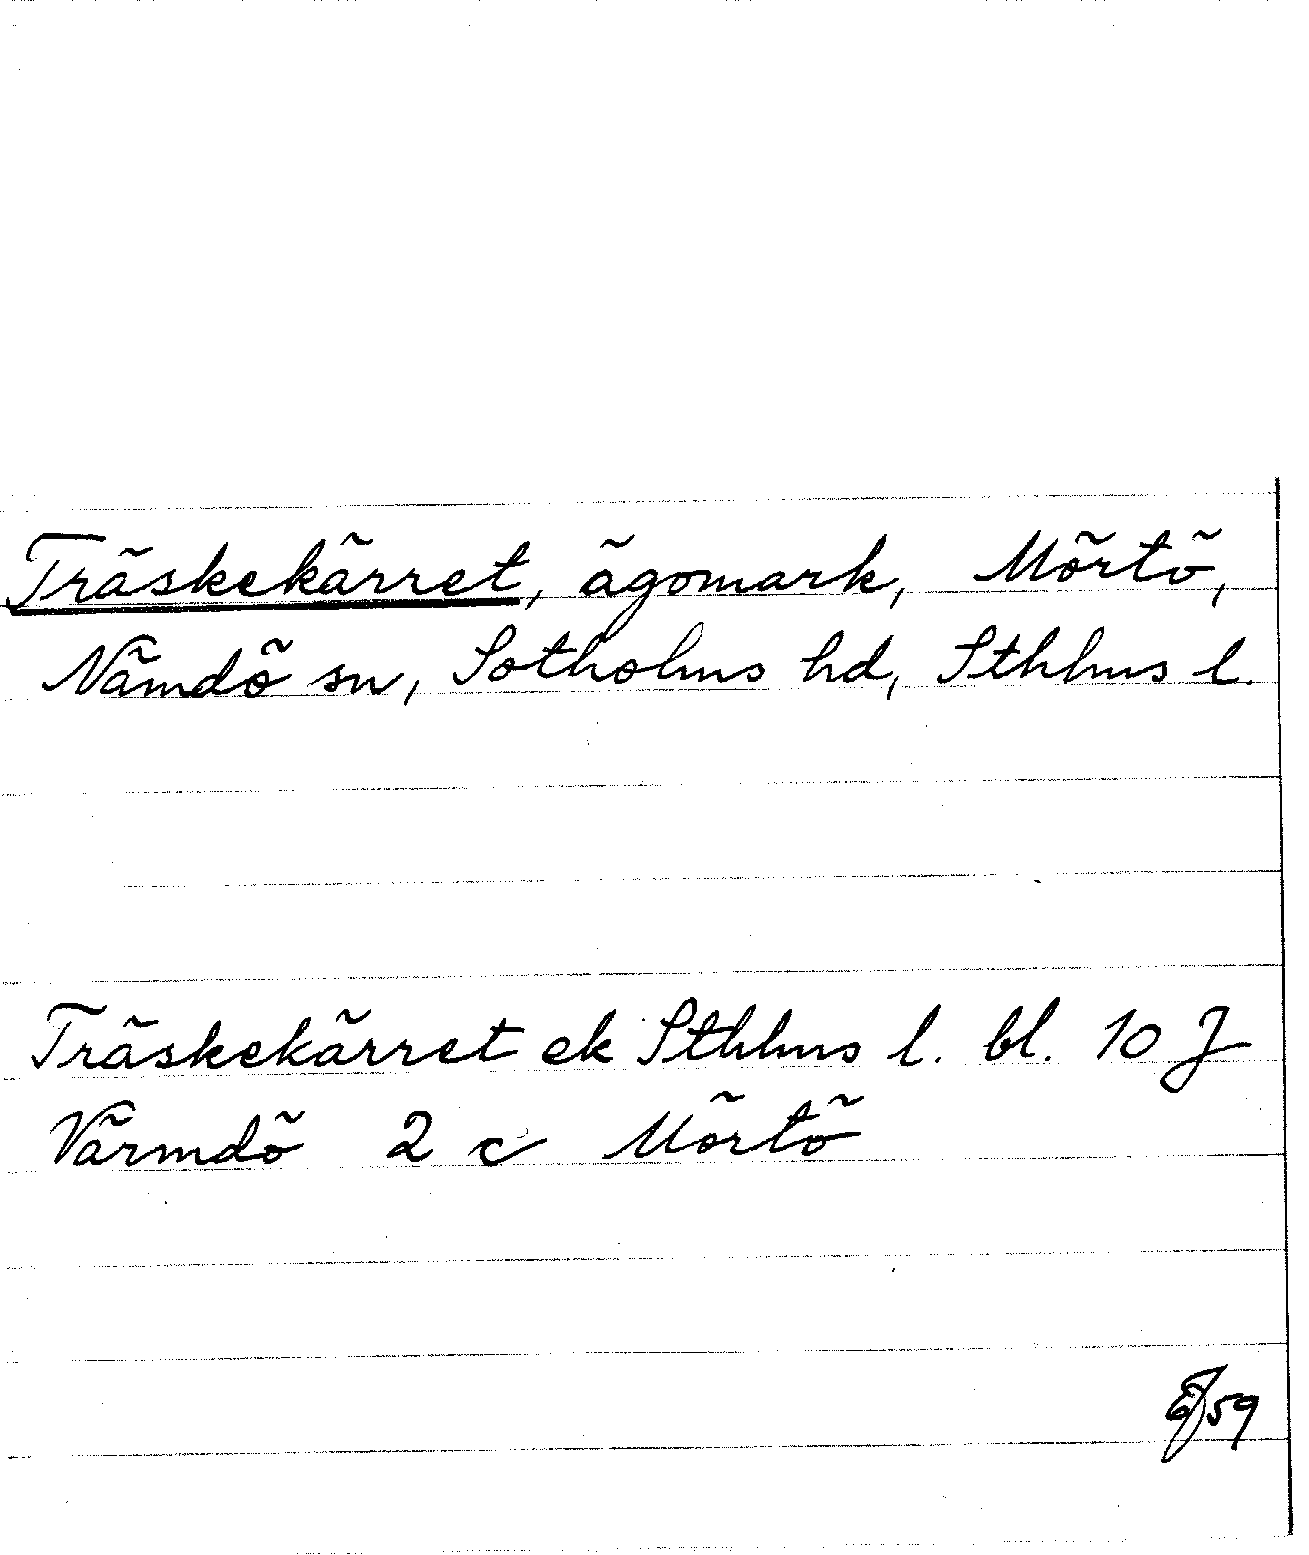 Träskekärret, ägomark, Mörtö,
Nämdö sn, Sotholms hd, Sthlms l.
Träskekärret ek Sthlms l. bl. 10 J
Värmdö 2 c Mörtö
59